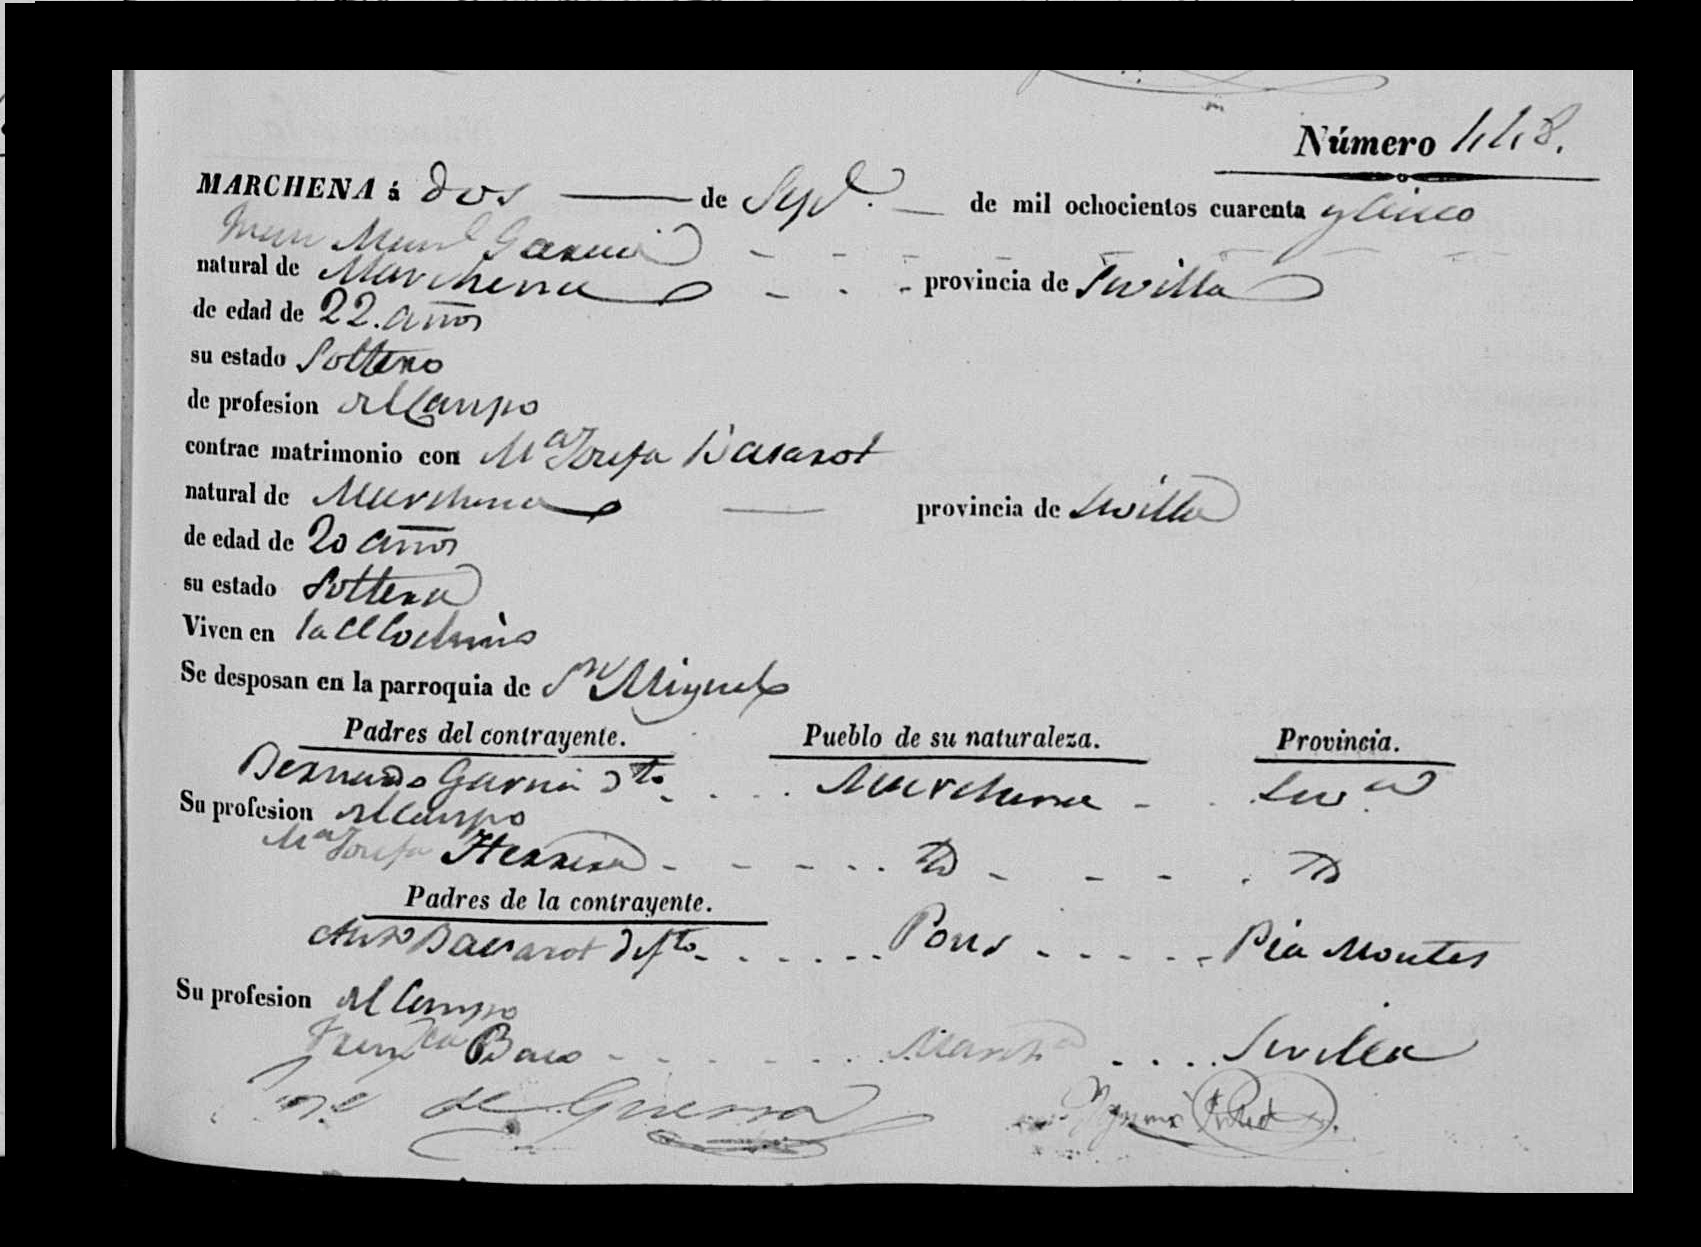 Número 448.
MARCHENA á dos de Sepe. de mil ochocientos cuarenta y Cinco
Juan Manl Garcia
natural de Marchena provincia de Sevilla
de edad de 22. años
su estado Solttero
de profesion del Campo
contrae matrimonio con Ma Josefa Bararot
natural de Marchena provincia de Sevilla
de edad de 20 años
su estado Solttera
Viven en la Cll
Se desposan en la parroquia de Sn Miguel
Padres del contrayente. Pueblo de su naturaleza. Provincia.
Bernardo Garcia dto Marchena Seva
Su profesion del Campo
Ma Josefa Herrera
Padres de la contrayente.
Anto Bararot difto Pia Montes
Su profesion del Campo
Franca Marcha Sevilla
José de Guerra